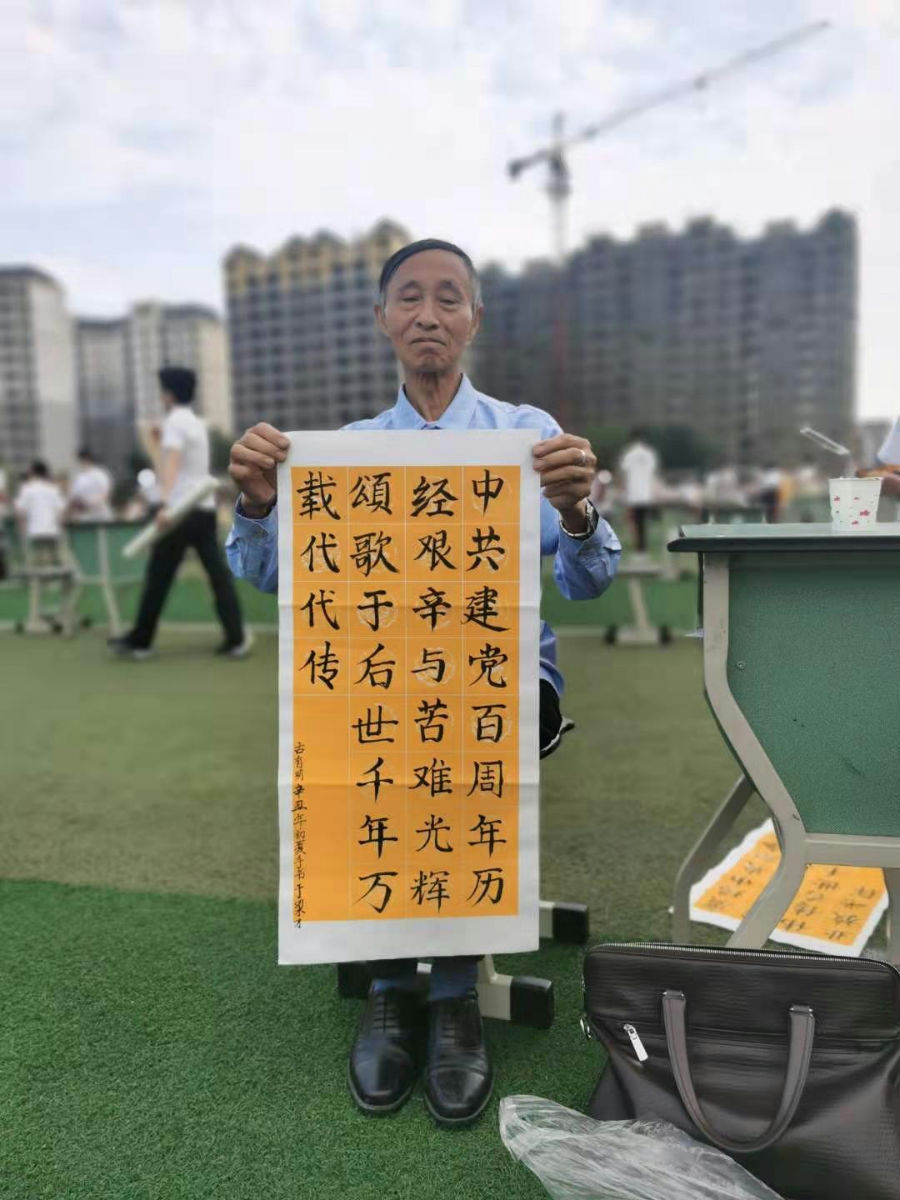 中共建党百周年历
经艰辛与苦难光辉
頌歌于后世千年万
载代代传
辛丑年初夏于书于梁才